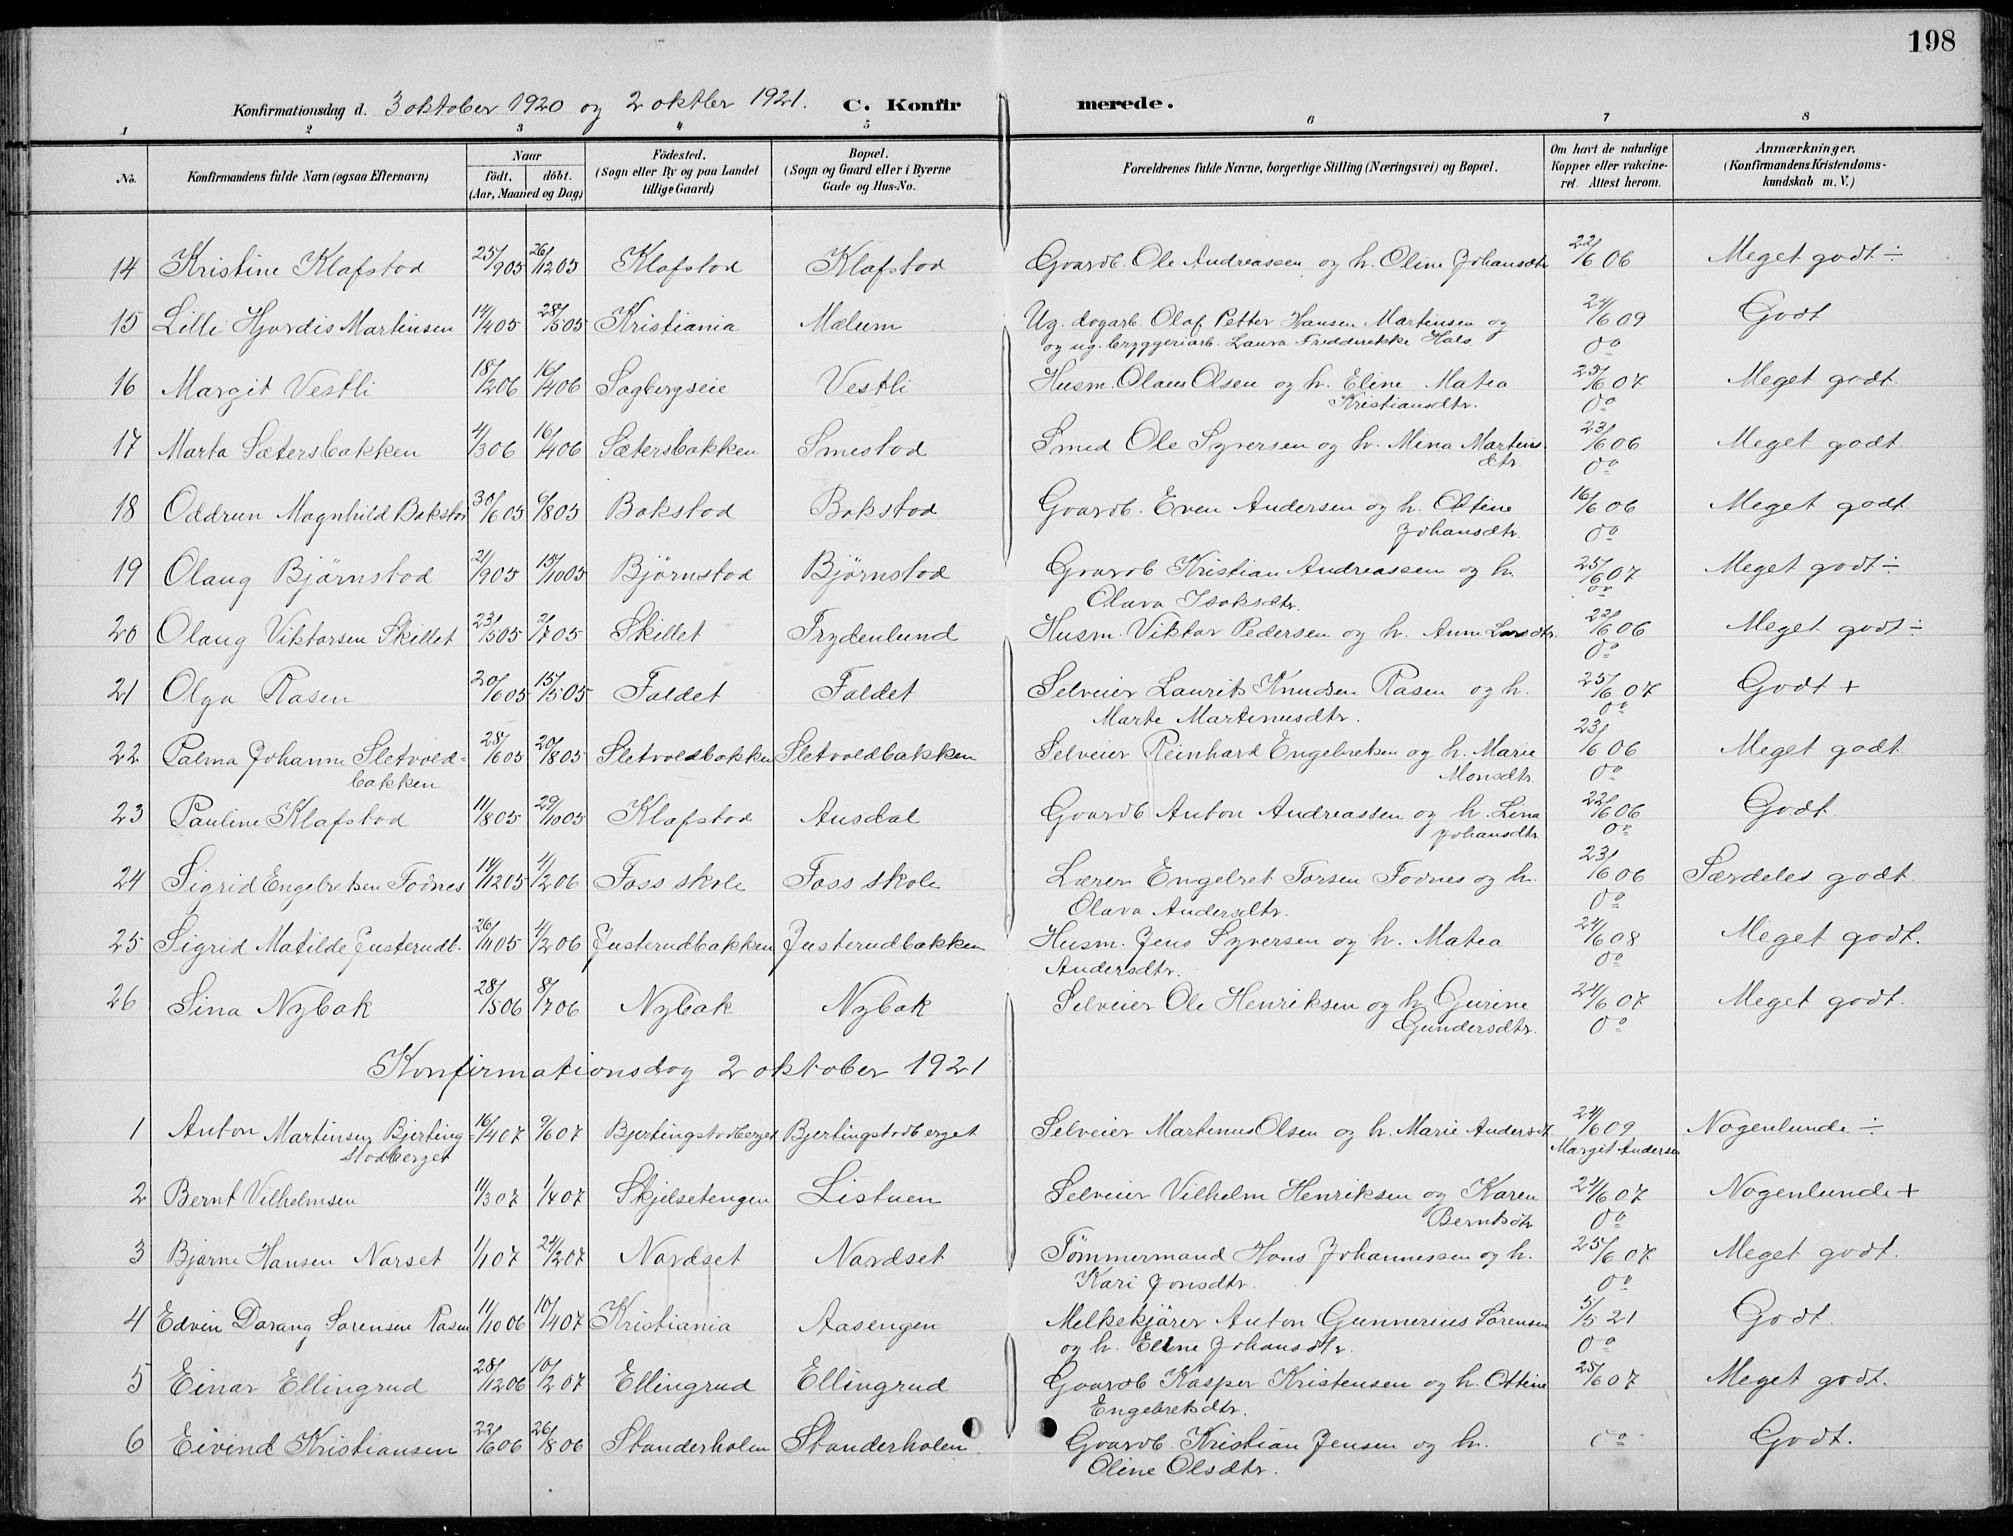 198
Konfirmationsdag d. 3 oktober 1920 og 2 oktber 1921. C. Konfirmerede.
1 2 3 4 5 6 7 8
No. Konfirmandens fulde Navn (ogsaa Efternavn) Naar födt. döbt. (Aar, Maaned og Dag) Födested. (Sogn eller By og paa Landet tillige Gaard) Bopæl. (Sogn og Gaard eller i Byerne Gade og Hus-No. Forældrenes fulde Navne, borgerlige Stilling (Næringsvei) og Bopæl. Om havt de naturlige Kopper eller vakcineret. Attest herom. Anmærkninger. (Konfirmandens Kristendomskundskab m. V.)
14 Kristine Klafstad 25/9 05 26/12 05 Klafstad Klafstad Gaardb. Ole Andreassen og h. Oline Johansdtr 22/6 06 Meget godt ÷
15 Lilli Hjørdis Martinsen 14/4 05 28/5 05 Kristiania Mælum Ug. dagarb Olaf Petter Hansen Martinsen og 24/6 09 Godt
og ug. bryggeriarb. Laura Fredderikke Hals. Do
16 Margit Vestli 18/2 06 16/4 06 Sagbergseie Vestli Husm. Olaus Olsen og h. Eline Matea 25/6 07 Meget godt.
Kristiansdtr. Do
17 Marta Sætersbakken 4/3 06 16/4 06 Sætersbakken Smestad Smed Ole Syversen og h. Mina Martins- 23/6 06 Meget godt.
dtr. Do
18 Oddrun Magnhild Bakstad 30/6 05 6/8 05 Bakstad Bakstad Gaardb. Even Andersen og h. Ottine 16/6 06 Meget godt
Johansdtr. Do
19 Olaug Bjørnstad 21/9 05 15/10 05 Bjørnstad Bjørnstad Gaardb Kristian Andreassen og h. 25/6 07 Meget godt ÷
Olava Isaksdtr. Do
20 Olaug Viktorsen Skillet 23/5 05 2/7 05 Skillet Frydenlund Husm. Viktor Pedersen og h. Anne Larsdtr. 22/6 06 Meget godt ÷
Do
21 Olga Rasen 20/6 05 15/5 05 Faldet Faldet Selveier Laurits Knudsen Rasen og h. 25/6 07 Godt +
Marte Martinusdtr. Do
22 Palma Johanne Sletvold- 28/6 05 20/8 05 Sletvoldbakken Sletvoldbakken Selveier Reinhard Engebretsen og h. Marie 23/6 06 Meget godt.
bakken Monsdtr. Do
23 Pauline Klafstad 11/8 05 29/10 05 Klafstad Ausdal Gaardb Anton Andreassen og h. Lina 22/6 06 Godt.
Johansdtr Do
24 Sigrid Engebretsen Fodnes 14/12 05 4/2 06 Foss skole Foss skole Lærer Engebret Tarsen Fodnes og h. 23/6 06 Særdeles godt.
Olava Andersdtr. Do
25 Sigrid Matilde Justerudb. 26/11 05 4/2 06 Justerudbakken Justerudbakken Husm. Jens Syversen og h. Matea 24/6 08 Meget godt.
Andersdtr. Do
26 Sina Nybak 28/5 06 8/7 06 Nybak Nybak Selveier Ole Henriksen og h. Gurine 24/6 07 Meget godt.
Gundersdtr. Do
Konfirmationsdag 2 oktober 1921
1 Anton Martinsen Bjerting- 16/4 07 9/6 07 Bjertingstadberget Bjertingstadberget Selveier Martinus Olsen og h. Marie Andersdt. 24/6 09 Nogenlunde ÷
stadberget Margit Andersen
2 Bernt Vilhelmsen 11/3 07 1/4 07 Skjelsetengen Listuen Selveier Vilhelm Henriksen og Karen 24/6 07 Nogenlunde +
Berntsdtr Do
3 Bjarne Hansen Narset 1/1 07 24/2 07 Nordset Nordset Tømmermand Hans Johannessen og h. 25/6 07 Meget godt.
Kari Jonsdtr. Do
4 Edvin Dorang Sørensen Rasen 11/10 06 10/4 07 Kristiania Aasengen Melkekjører Anton Gunnerius Sørensen 5/5 21 Godt.
og h. Eline Johansdtr. Do
5 Einar Ellingrud 28/12 06 10/2 07 Ellingrud Ellingrud Gaardb Kasper Kristensen og h. Ottine 25/6 07 Meget godt.
Engebretsdtr.
6 Eivind Kristiansen 22/6 06 26/8 06 Standerholen Standerholen Gaardb. Kristian Jensen og h. Do Godt.
Oline Olsdtr.